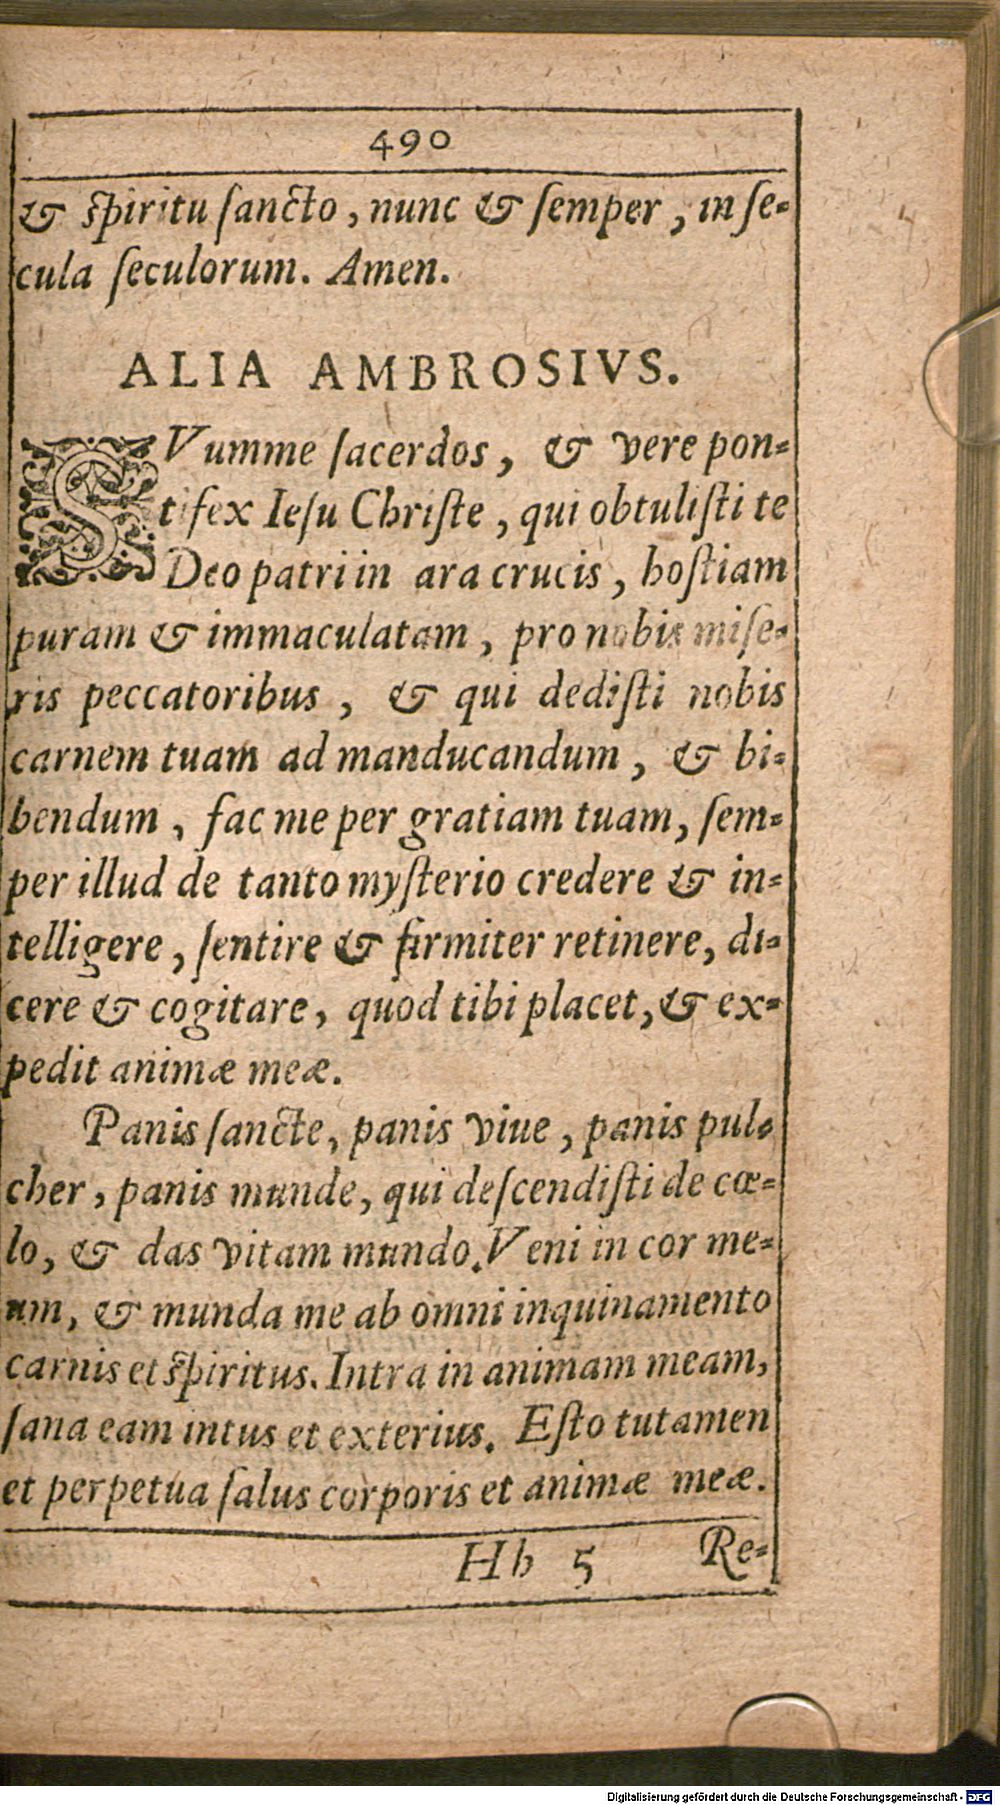 490
& ſpiritu ſancto, nunc & ſemper, in ſe-
cula ſeculorum. Amen.
ALIA AMBROSIVS.
SVumme ſacerdos, & vere pon-
tifex Ieſu Chriſte, qui obtuliſti te
Deo patri in ara crucis, hoſtiam
puram & immaculatam, pro nobis miſe-
ris peccatoribus, & qui dediſti nobis
carnem tuam ad manducandum, & bi-
bendum, fac me per gratiam tuam, ſem-
per illud de tanto myſterio credere & in-
telligere, ſentire & firmiter retinere, di-
cere & cogitare, quod tibi placet, & ex-
pedit animæ meæ.
Panis ſancte, panis viue, panis pul-
cher, panis munde, qui deſcendiſti de cœ-
lo, & das vitam mundo. Veni in cor me-
um, & munda me ab omni inquinamento
carnis et ſpiritus. Intra in animam meam,
ſana eam intus et exterius. Eſto tutamen
et perpetua ſalus corporis et animæ meæ.
Hh 5 Re-
Digitalisierung gefördert durch die Deutsche Forschungsgemeinschaft - DFG